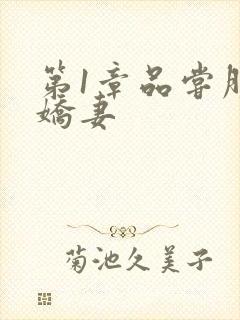 第1章品尝
娇妻
菊池久美子